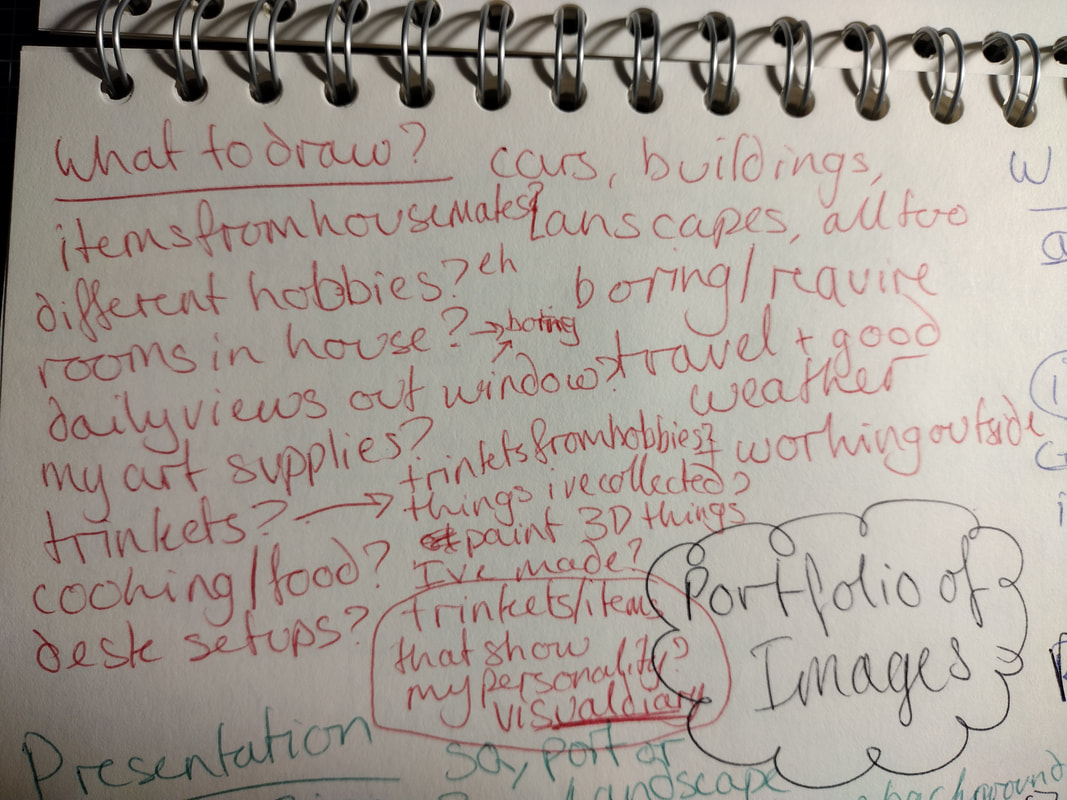 What to draw?
items from housemates?
different hobbies? eh
rooms in house? → boring
daily views out window?
my art supplies?
trinkets? →
cooking/food?
desk setups?
cars, buildings,
lanscapes, all too
boring/require
travel + good
weather
+ working outside
trinkets from hobbies?
things ive collected?
paint 3D things
I've made?
trinkets/items
that show
my personality?
visual diary
Portfolio of
Images
Presentation
sq, port or
landscape
background
W
a
i